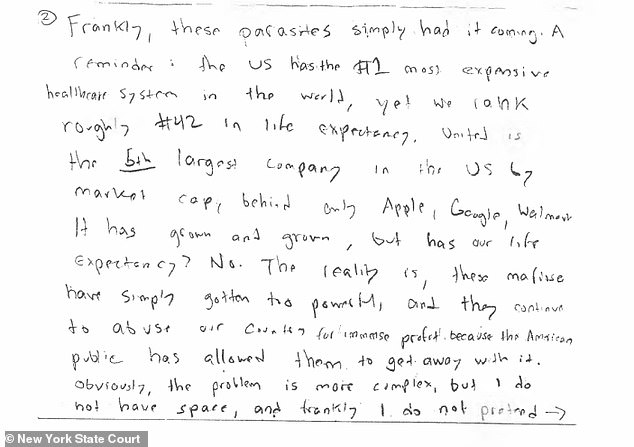 ② Frankly, these parasites simply had it coming. A
reminder: the US has the #1 most expensive
healthcare system in the world, yet we rank
roughly #42 in life expectancy. United is
the 5th largest company in the US by
market cap, behind only Apple, Google, Walmart.
It has grown and grown, but has our life
expectancy? No. The reality is, these mafiose
have simply gotten too powerful, and they continue
to abuse our country for immense profit because the American
public has allowed them to get away with it.
Obviously, the problem is more complex, but I do
not have space, and frankly I do not pretend →
© New York State Court